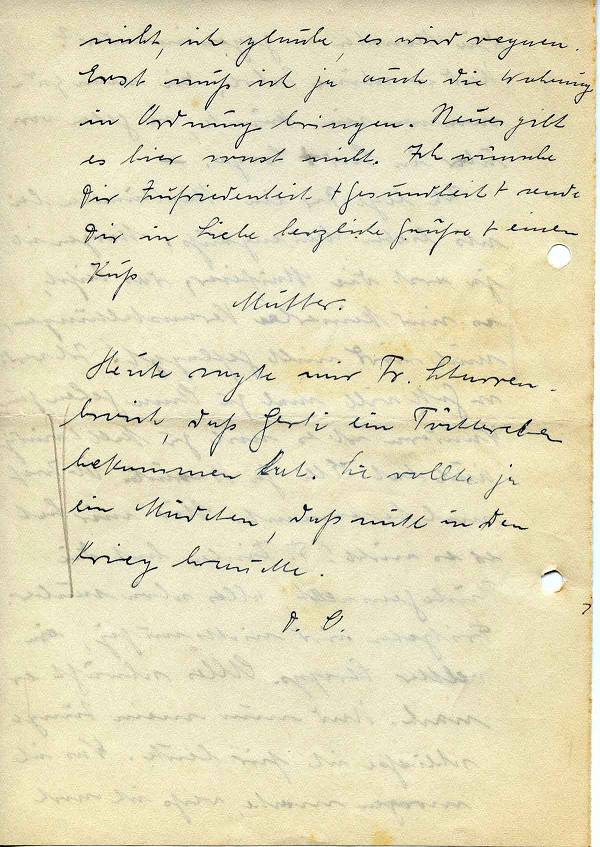 nicht, ich glaube, es wird regnen.
Erst muß ich ja auch die Wohnung
in Ordnung bringen. Neues gibt
es hier sonst nicht. Ich wünsche
Dir Zufriedenheit + Gesundheit + sende
Dir in Liebe herzliche Grüße + einen
Kuß
Mutter.
Heute sagte mir Fr.
daß Gerti ein Töchterchen
bekommen hat. Sie wollte ja
ein Mädchen, daß nicht in den
Krieg brauchte.
D. O.